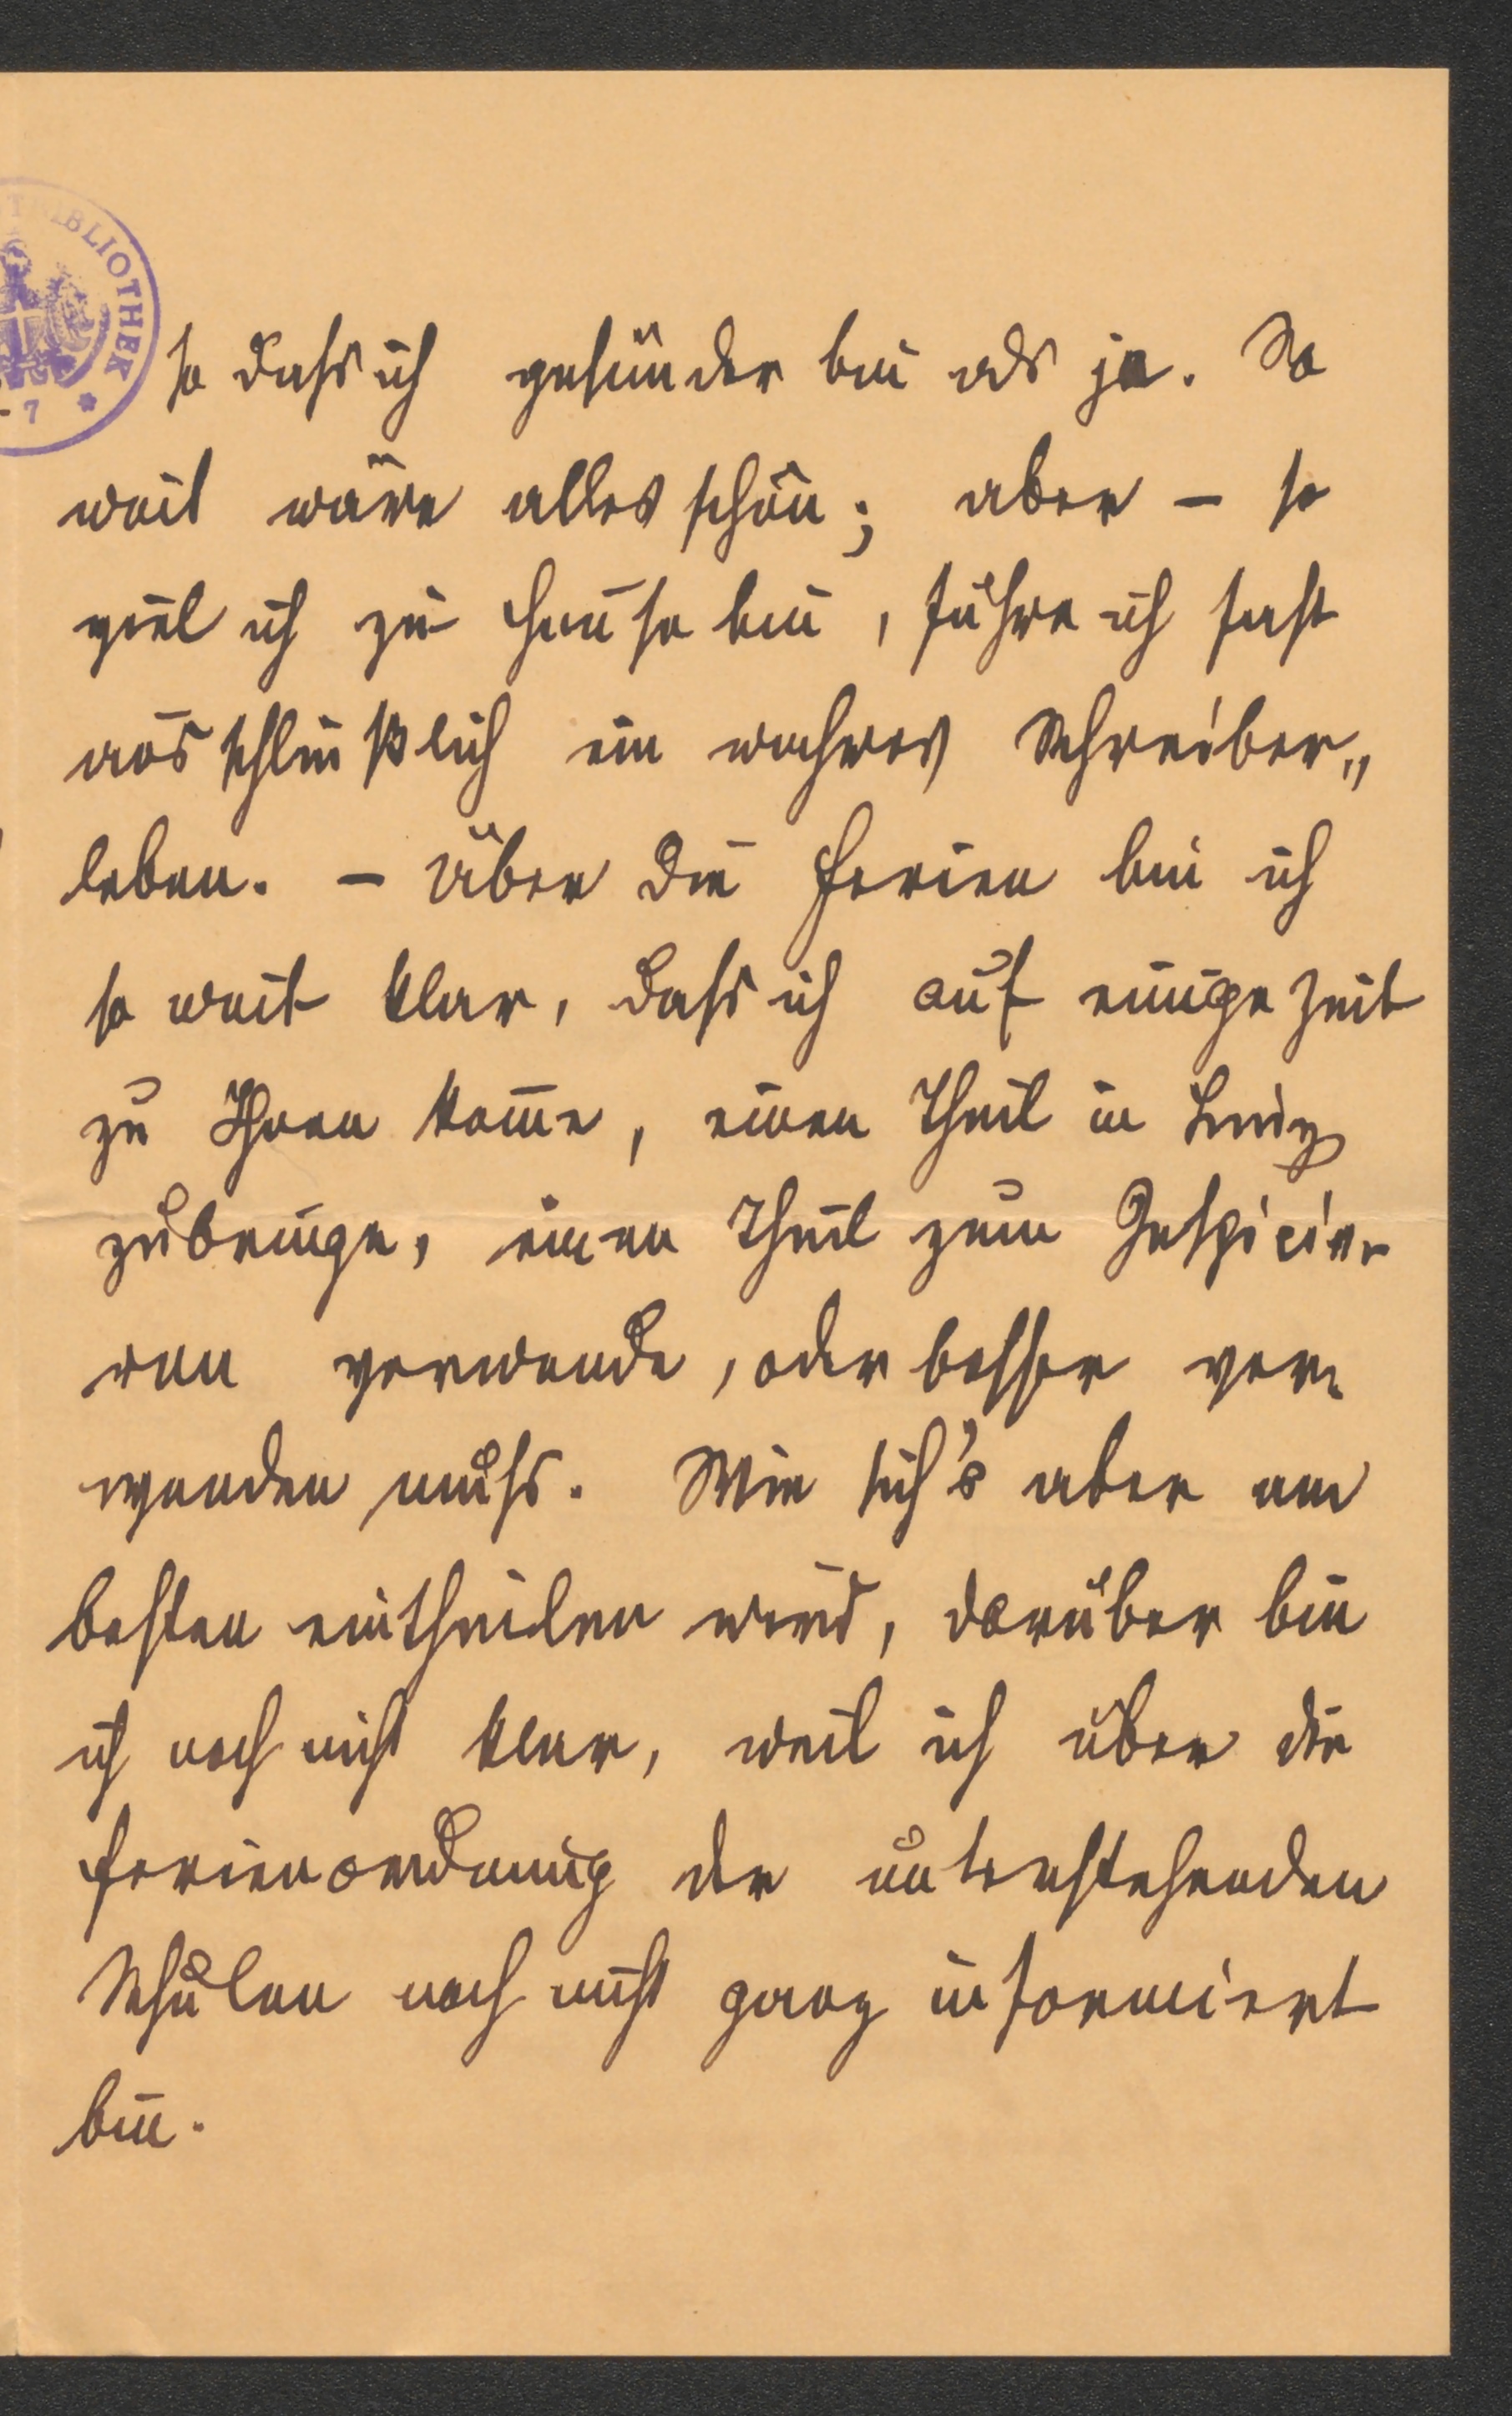 TBIBLIOTHEK
7 *
so dass ich gesünder bin als je. So
weit wäre alles schön; aber – so
viel ich zu Hause bin, führe ich fast
ausschließlich ein wahres Schreiber„
leben. – Über die Ferien bin ich
so weit klar, dass ich auf einige Zeit
zu Ihnen kom̅e, einen Theil in
zubringe, einen Theil zum Inspicie-
ren verwende, oder besser ver-
wenden muss. Wie sich's aber am
besten eintheilen wird, darüber bin
ich noch nicht klar, weil ich über die
Ferienordnung der unterstehenden
Schulen noch nicht ganz informiert
bin.